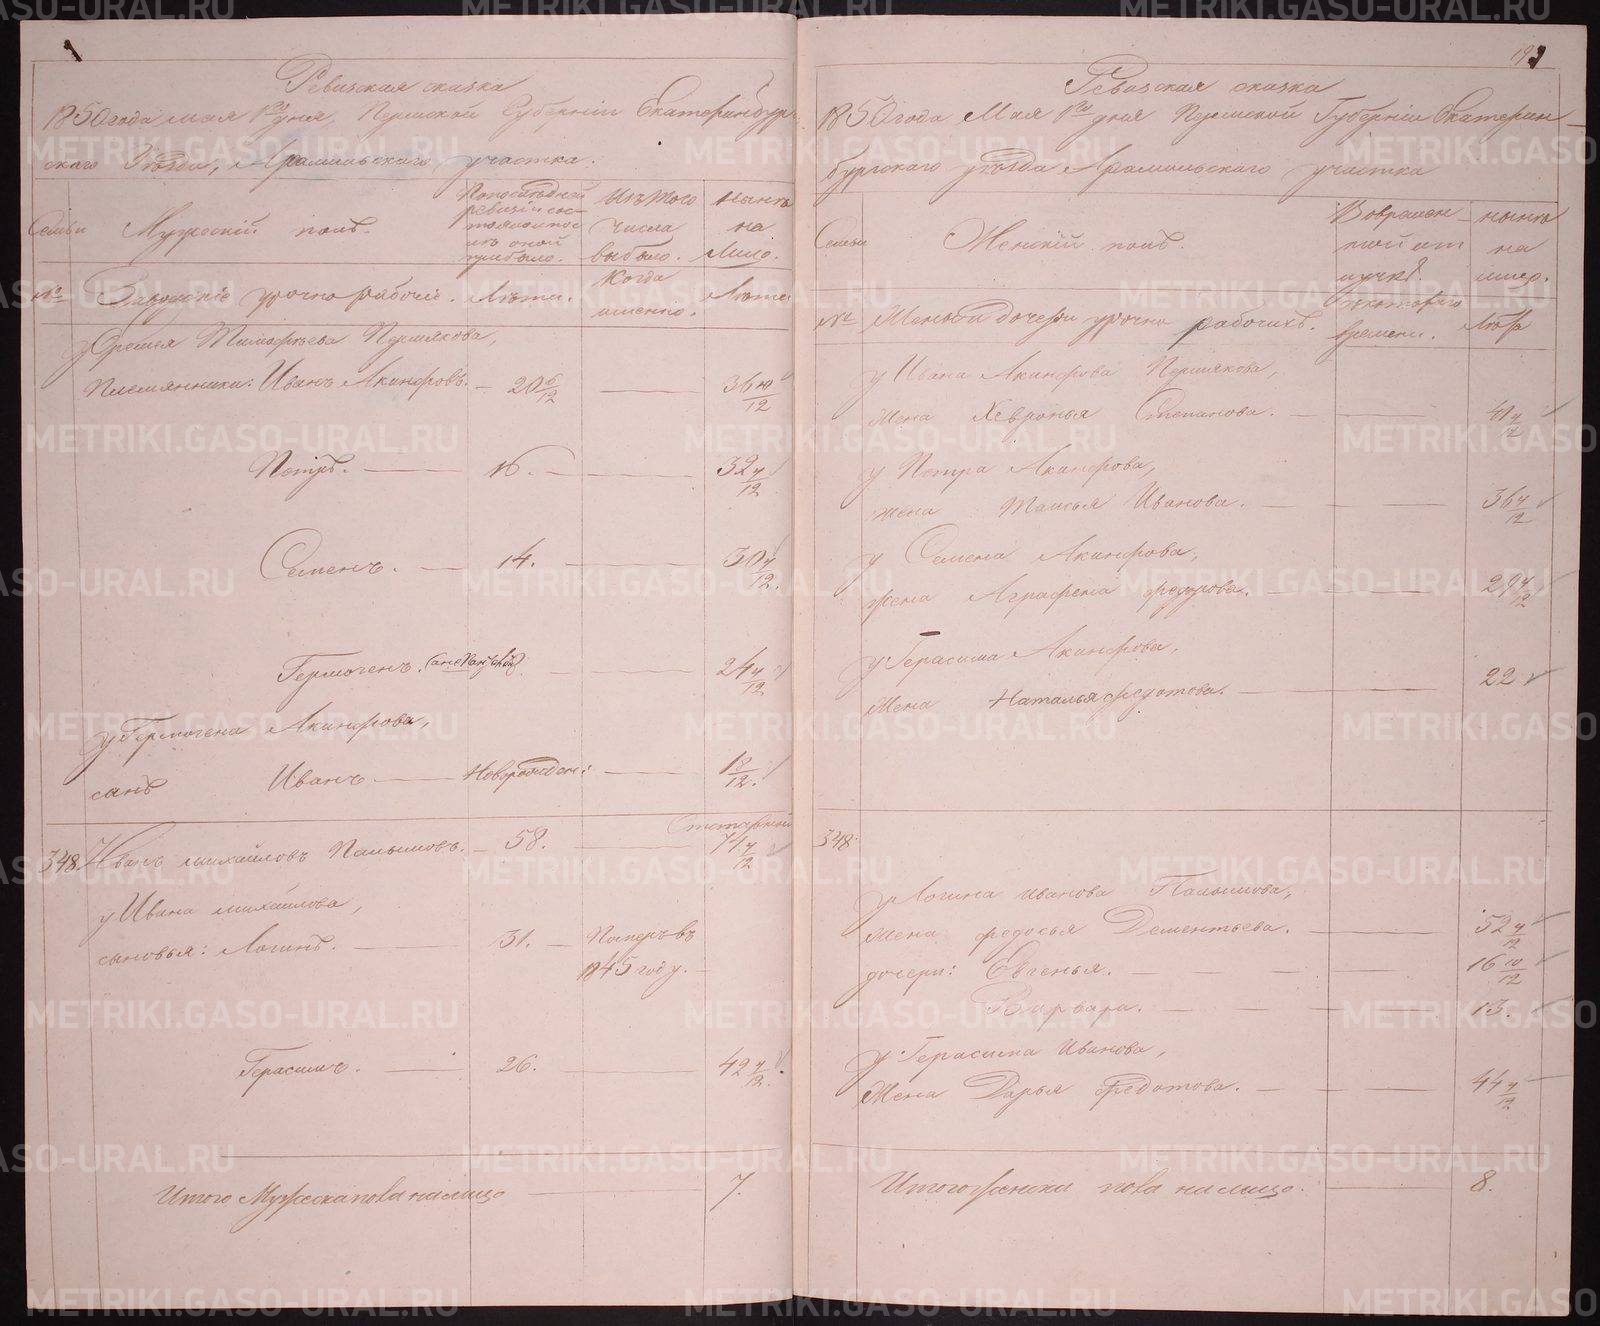 Ревизская сказка
1850 года мая 1го дня, Пермской Губернiи Екатеринбург-
скаго Уѣзда, Арамильскаго участка.
Семьи
Мужескiй полъ.
По последней ревизiи сос-
тояло и пос-
лѣ оной прибыло.
Изъ того числа выбыло.
Нынѣ на лицо.
№
Заводскiе урочно рабочiе.
Лѣта.
Когда именно.
Лѣта
у Ермея Тимофѣева Пермякова,
Племянники: Иванъ Акинфовъ. 20 6/12 36 10/12
Петръ. 16. 32 4/12
Семенъ. 14. 30 4/12
Гермогенъ. 24 4/12
у Гермогена Акинфова,
сынъ Иванъ Новорожден: 18/12.
348. Иванъ Михайловъ Палымовъ. 58. 74 4/12
у Ивана Михайлова,
сыновья: Логинъ. 31. Померъ въ
1845 году.
Герасимъ. 26. 42 4/12.
Итого Мужеска пола на лицо 7.
193
Ревизская сказка
1850 года Мая 1го дня Пермской Губернiи Екатерин-
бургскаго уѣзда Арамильскаго участка
Семьи
Женскiй полъ.
Во времен-
ной от
лучкѣ
ныне на лицо.
№
Жены и дочери урочно рабочихъ.
съ котораго времени.
Лѣта
у Ивана Акинфова Пермякова,
жена Хевронья Степанова. 41 4/12
у Петра Акинфова,
жена Таисья Иванова. 36 4/12
у Семена Акинфова,
жена Аграфена Федорова. 29 4/12
у Герасима Акинфова,
жена Наталья Федотова. 22
348.
у Логина Иванова Палымова,
жена Федосья Дементьева. 52 4/12
дочери: Евгенья. 16 10/12
Варвара. 13.
у Герасима Иванова,
жена Дарья Федотова. 44 4/12
Итого женска пола на лицо. 8.
METRIKI.GASO-URAL.RU